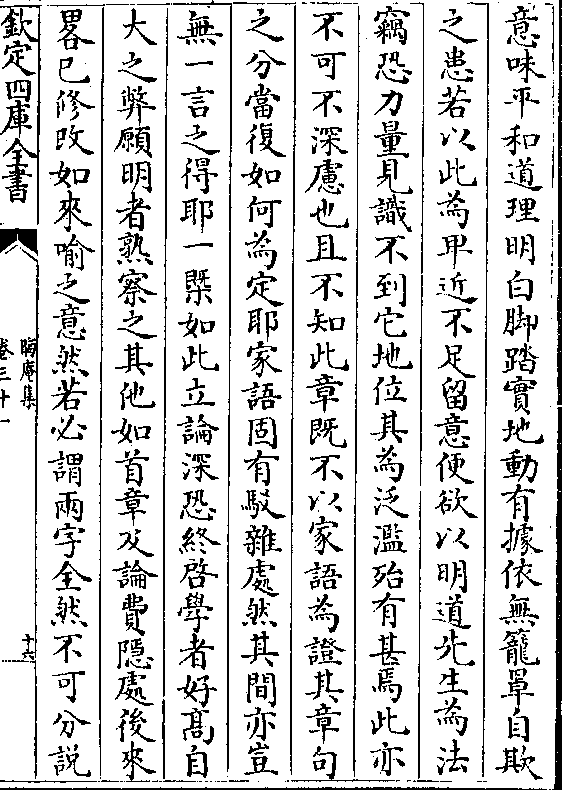 意味平和道理明白脚踏實地動有據依無籠罩自欺
之患若以此為卑近不足留意便欲以明道先生為法
竊恐力量見識不到它地位其為泛濫殆有甚焉此亦
不可不深慮也且不知此章既不以家語為證其章句
之分當復如何為定耶家語固有駁雜處然其間亦豈
無一言之得耶一槩如此立論深恐終啓學者好髙自
大之弊願明者熟察之其他如首章及論費隠處後來
畧已修改如來喻之意然若必謂兩字全然不可分説
欽定四庫全書
晦庵集
卷三十一
十六